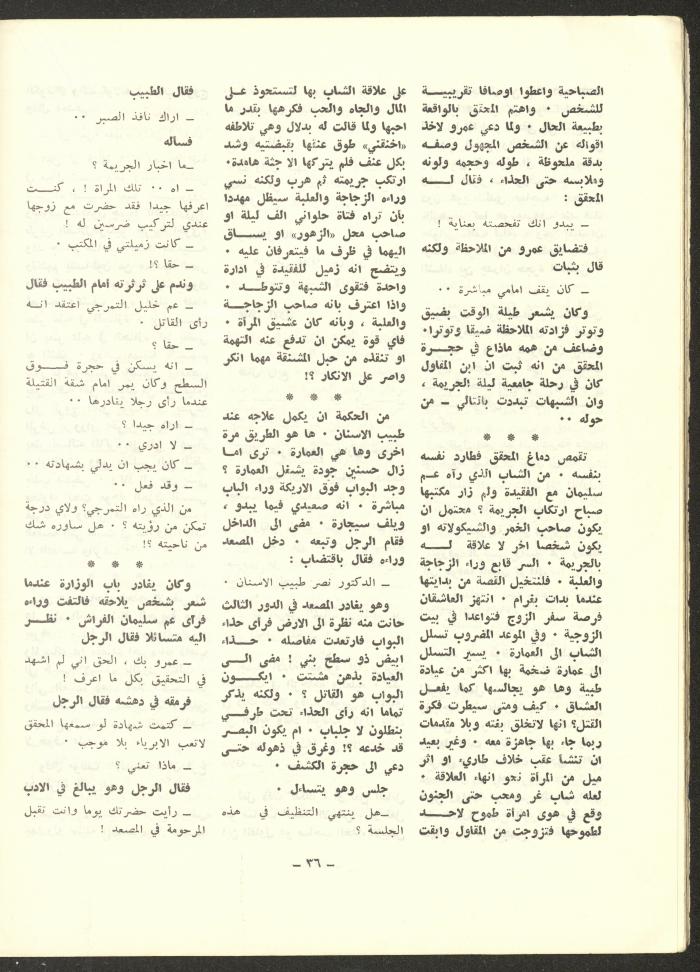 الصباحية واعطوا اوصافا تقريبيـــة
للشخص ٠ واهتم المحقق بالواقعة
بطبيعة الحال ٠ ولما دعي عمرو لاخذ
اقواله عن الشخص المجهول وصفـه
بدقة ملحوظة ، طوله وحجمه ولونه
وملابسه حتى الحذاء ، فقال لـــه
المحقق :
ــ يبدو انك تفحصته بعناية !
فتضايق عمرو من الملاحظة ولكنه
قال بثبات
ــ كان يقف امامي مباشرة ٠٠
وكان يشعر طيلة الوقت بضيق
وتوتر فزادته الملاحظة ضيقا وتوترا٠
وضاعف من همه ماذاع في حجـــرة
المحقق من انه ثبت ان ابن المقاول
كان في رحلة جامعية ليلة الجريمة ،
وان الشبهات تبددت بالتالي ــ من
حوله ٠٠
* * *
تقمص دماغ المحقق فطارد نفسه
بنفسه ٠ من الشاب الذي رآه عــم
سليمان مع الفقيدة ولم زار مكتبها
صباح ارتكاب الجريمة ؟ محتمل ان
يكون صاحب الخمر والشيكولاته او
يكون شخصا اخر لا علاقة لـــه
بالجريمة ٠ السر قابع وراء الزجاجة
والعلبة ٠ فلنتخيل القصة من بدايتها
عندما بدات بغرام ٠ انتهز العاشقان
فرصة سفر الزوج فتواعدا في بيت
الزوجية ٠ وفي الموعد المضروب تسلل
الشاب الى العمارة ٠ يسير التسلل
الى عمارة ضخمة بها اكثر من عيادة
طبية وها هو يجالسها كما يفعـــل
العشاق ٠ كيف ومتى سيطرت فكرة
القتل؟ انها لاتخلق بغتة وبلا مقدمات
ربما جاء بها جاهزة معه ٠ وغير بعيد
ان تنشأ عقب خلاف طاريء او اثر
ميل من المرأة نحو انهاء العلاقة ٠
لعله شاب غر ومحب حتى الجنون
وقع في هوى امرأة طموح لاحــــد
لطموحها فتزوجت من المقاول وابقت
على علاقة الشاب بها لتستحوذ علـى
المال والجاه والحب فكرهها بقدر ما
احبها ولما قالت له بدلال وهي تلاطفه
«اخنقني» طوق عنقها بقبضتيه وشد
بكل عنف فلم يتركها الا جثة هامدة٠
ارتكب جريمته ثم هرب ولكنه نسي
وراءه الزجاجة والعلبة سيظل مهددا
بأن تراه فتاة حلواني الف ليلة او
صاحب محل «الزهور» او يســـاق
اليهما في ظرف ما فيتعرفان عليه ٠
ويتضح انه زميل للفقيدة في ادارة
واحدة فتقوى الشبهة وتتوطــد ٠
واذا اعترف بأنه صاحب الزجاجـة
والعلبة ، وبأنه كان عشيق المرأة ٠
فاي قوة يمكن ان تدفع عنه التهمة
او تنقذه من حبل المشنقة مهما انكر
واصر على الانكار ؟!
* * *
من الحكمة ان يكمل علاجه عند
طبيب الاسنان ٠ ها هو الطريق مرة
اخرى وها هي العمارة ٠ ترى امـا
زال حسنين جودة يشغل العمارة ؟
وجد البواب فوق الاريكة وراء الباب
مباشرة ٠ انه صعيدي فيما يبدو ،
ويلف سيجارة ٠ مضى الى الداخل
فقام الرجل وتبعه ٠ دخل المصعد
وراءه فقال باقتضاب :
ــ الدكتور نصر طبيب الاسنان ٠
وهو يغادر المصعد في الدور الثالث
حانت منه نظرة الى الارض فرأى حذاء
البواب فارتعدت مفاصله ٠ حـــذاء
ابيض ذو سطح بني ! مضى الـــى
العيادة بذهن مشتت ٠ ايكـــون
البواب هو القاتل ؟ ٠ ولكنه يذكر
تماما انه رأى الحذاء تحت طرفـــي
بنطلون لا جلباب ٠ ام يكون البصر
قد خدعه ؟! وغرق في ذهوله حتـى
دعي الى حجرة الكشف ٠
جلس وهو يتساءل ٠
ــهل ينتهي التنظيف في هذه
الجلسة ؟
فقال الطبيب
ــ اراك نافذ الصبر ٠٠
فسأله
ــما اخبار الجريمة ؟
ــ اه ٠٠ تلك المرأة ! ، كنـــت
اعرفها جيدا فقد حضرت مع زوجها
عندي لتركيب ضرسين له !
ــ كانت زميلتي في المكتب ٠
ــ حقا ؟!
وندم على ثرثرته أمام الطبيب فقال
ــ عم خليل التمرجي اعتقد انـه
رأى القاتل ٠
ــ حقا ؟
ــ انه يسكن في حجرة فـــوق
السطح وكان يمر امام شقة القتيلة
عندما رأى رجلا يغادرها ٠٠
ــ اراه جيدا ؟
ــ لا ادري ٠٠
ــ كان يجب ان يدلي بشهادته ٠٠
ــ وقد فعل ٠٠
من الذي راه التمرجي؟ ولاي درجة
تمكن من رؤيته ؟ ٠ هل ساوره شك
من ناحيته ؟!
* * *
وكان يغادر باب الوزارة عندما
شعر بشخص يلاحقه فالتفت وراءه
فرآى عم سليمان الفراش ٠ نظــر
اليه متسائلا فقال الرجل
ــ عمرو بك ، الحق اني لم اشهد
في التحقيق بكل ما اعرف !
فرمقه في دهشه فقال الرجل
ــ كتمت شهادة لو سمعها المحقق
لاتعب الابرياء بلا موجب ٠
ــ ماذا تعني ؟
فقال الرجل وهو يبالغ في الادب
ــ رأيت حضرتك يوما وانت تقبل
المرحومة في المصعد !
ــ ٣٦ ــ